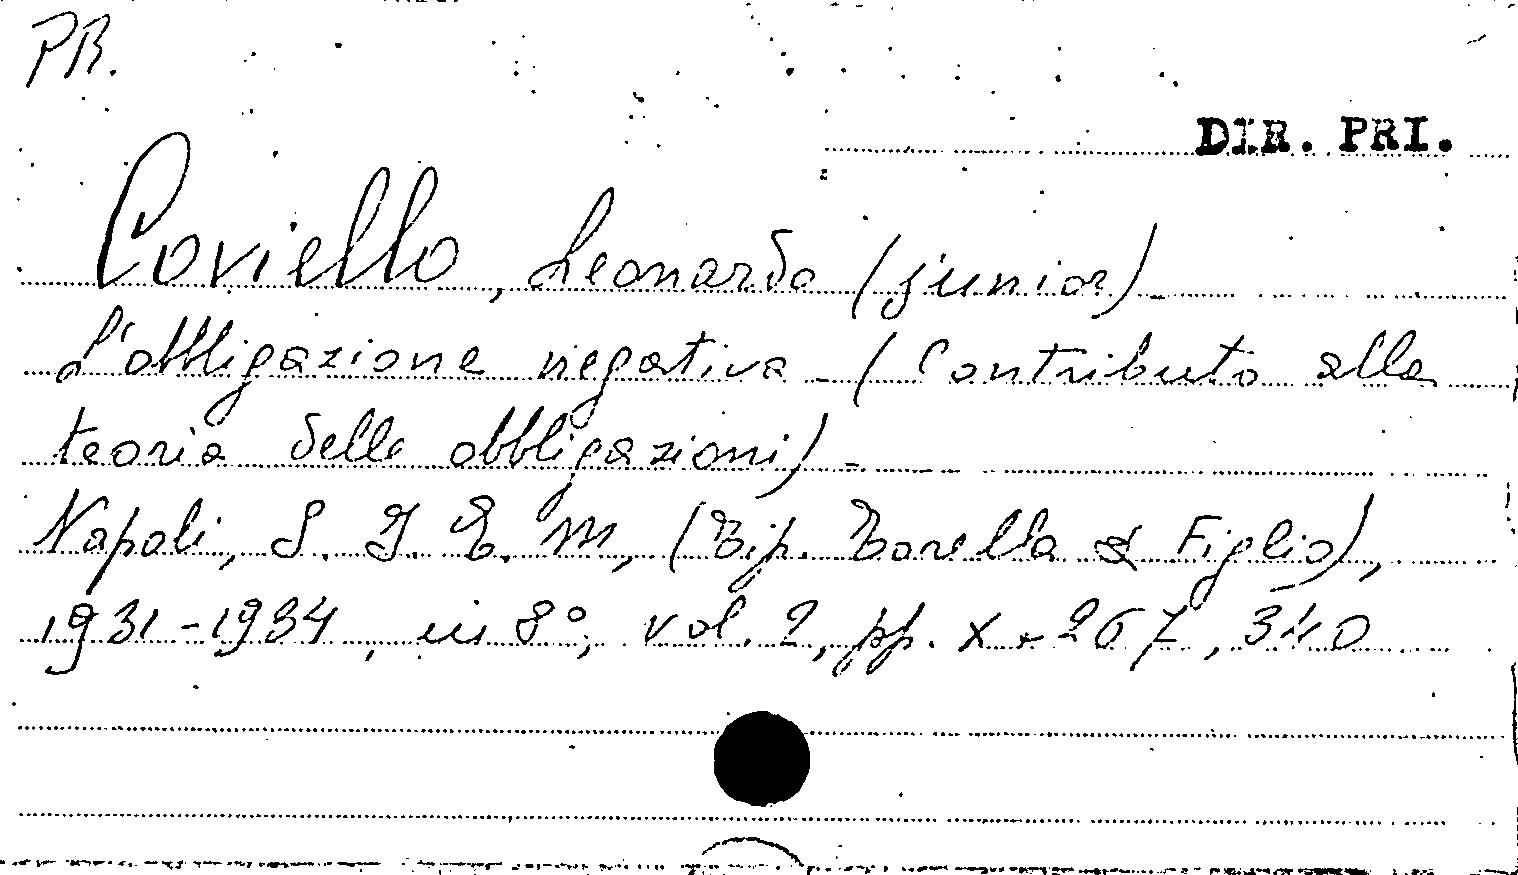 PR.
DIR. PRI.
Coviello, Leonardo (junior)
L'obbligazione negativa - (Contributo alla
teoria delle obbligazioni) -
Napoli, S. I. E. M., (Tip. Torella & Figlio),
1931-1934, in 8°, vol. 2, pp. X+267, 340